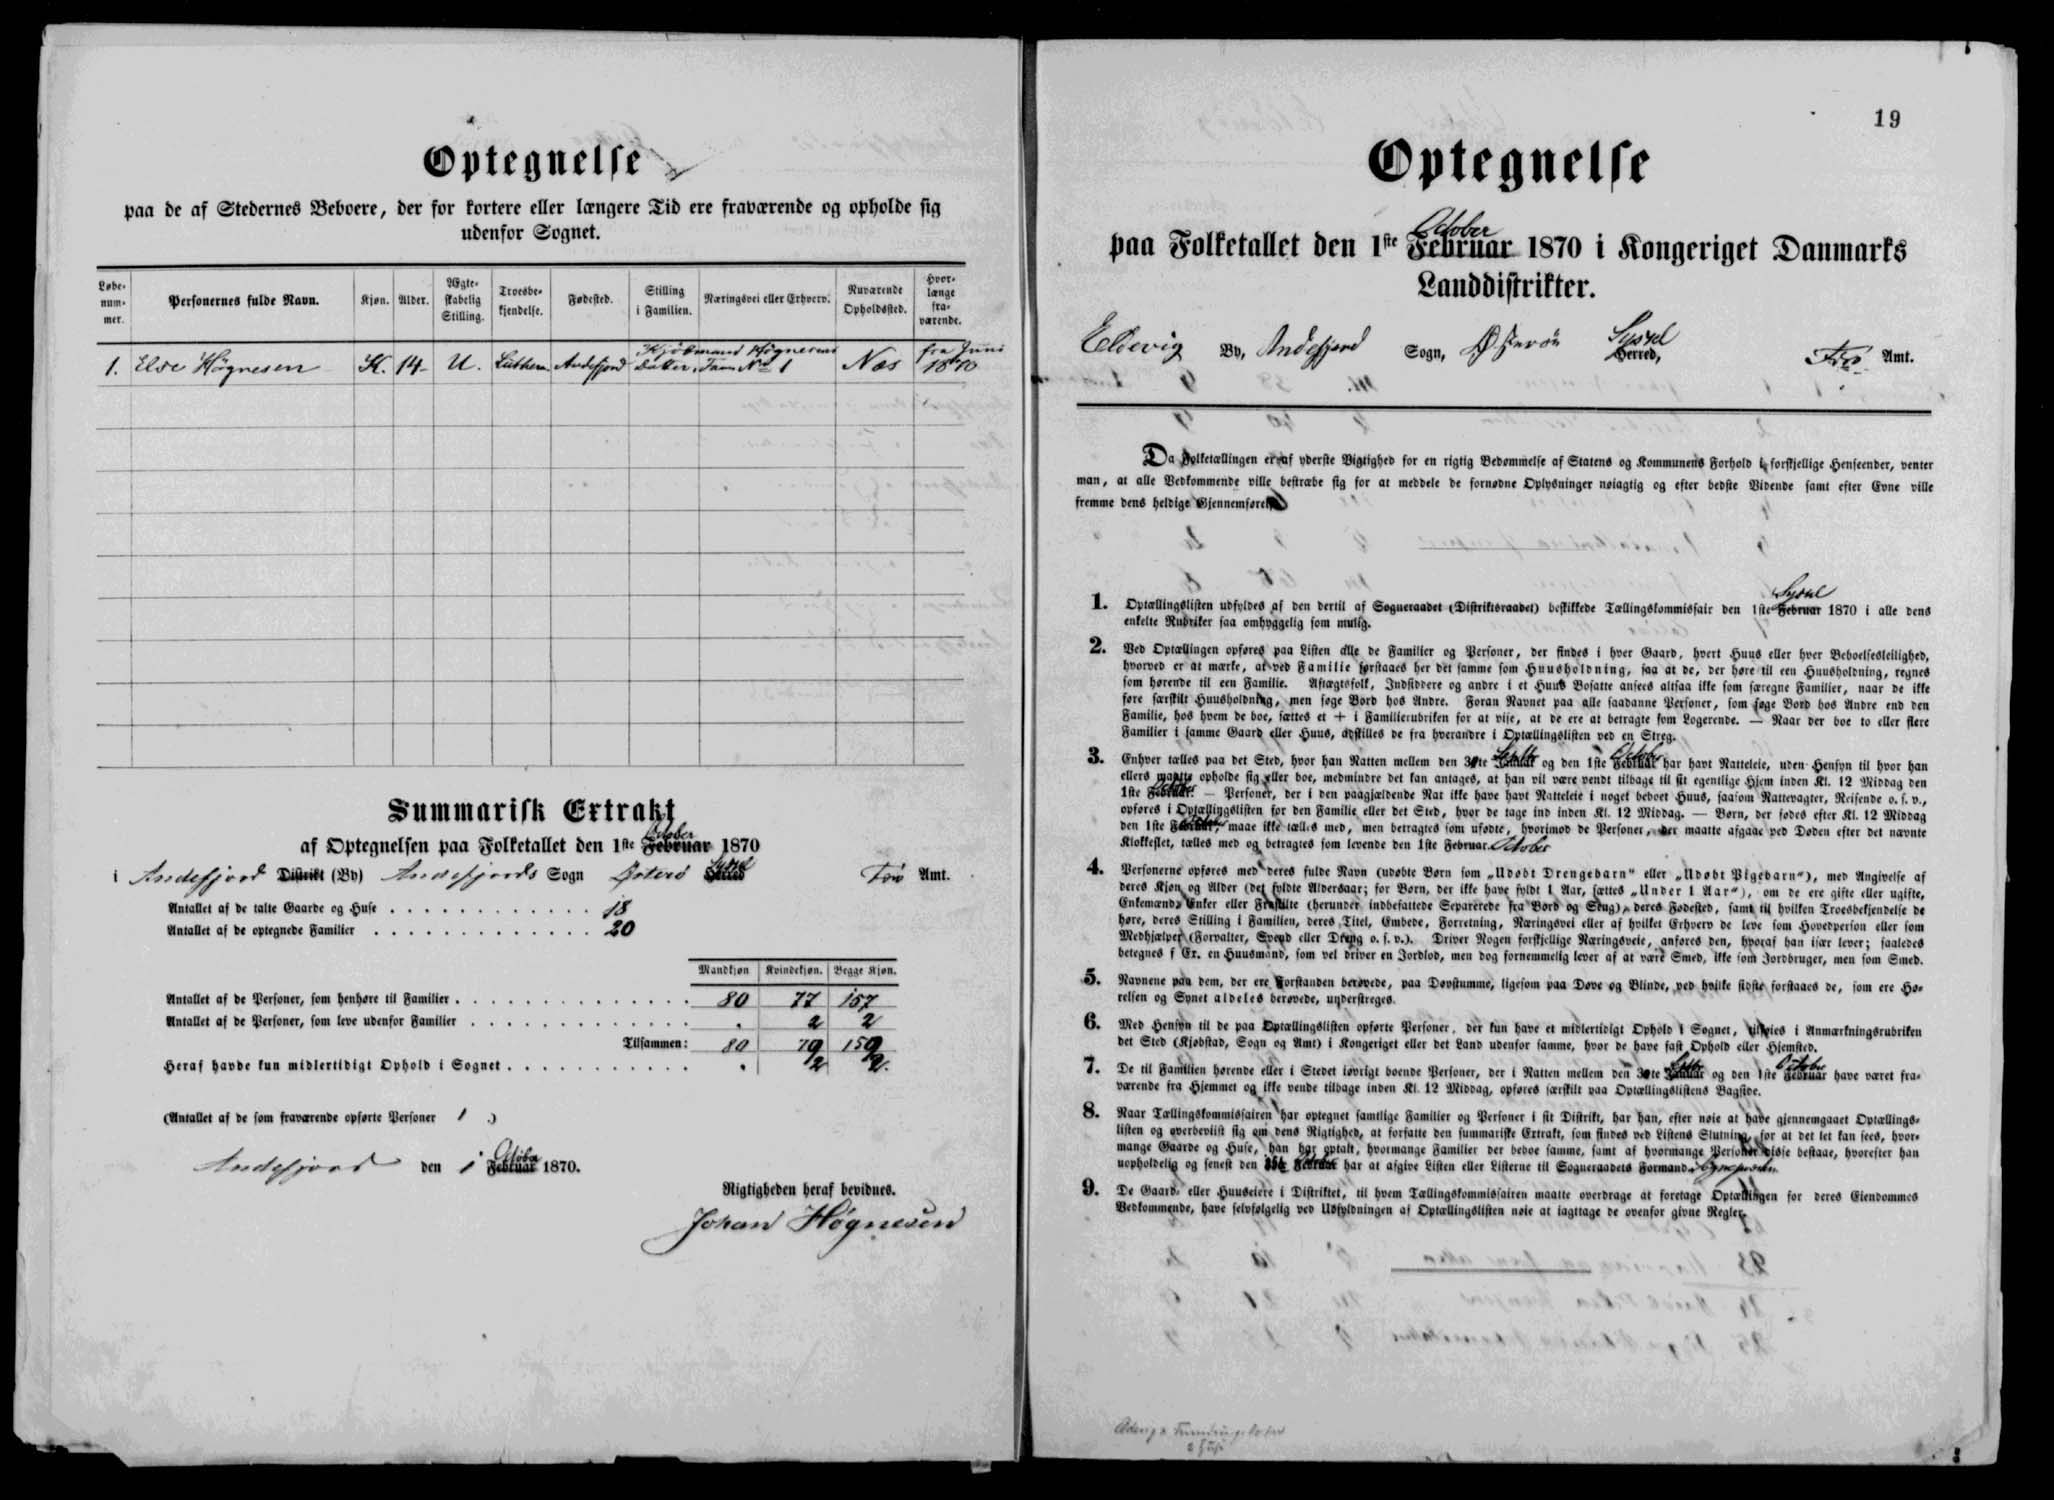 Optegnelse
paa de af Stedernes Beboere, der for kortere eller længere Tid ere fraværende og opholde sig
udenfor Sognet.
Løbe-num-mer. Personernes fulde Navn. Kjøn. Alder. Ægte-skabelig Stilling. Troesbe-kjendelse. Fødested. Stilling i Familien. Næringsvei eller Erhverv. Nuværende Opholdssted. Hvor-længe fra-værende.
1. Else Høgnesen K. 14 U. Luthera Andefjord Kjøbmand Høgnesens Datter, Fam. No 1 Næs fra Juni 1870
Summarisk Extrakt
October
af Optegnelsen paa Folketallet den 1ste Februar 1870
i Andefjord Distrikt (By) Andefjords Sogn Østerø Syssel Færø Amt.
Antallet af de talte Gaarde og Huse . . . 18
Antallet af de optegnede Familier . . . 20
Mandkjøn Kvindekjøn. Begge Kjøn.
Antallet af de Personer, som henhøre til Familier . . . 80 77 157
Antallet af de Personer, som leve udenfor Familier . . . . 2 2
Tilsammen: 80 79 159
Heraf havde kun midlertidigt Ophold i Sognet . . . . 2 2.
(Antallet af de som fraværende opførte Personer 1 .)
Andefjord den 1 Februar October 1870.
Rigtigheden heraf bevidnes.
Johan Høgnesen
19
Optegnelse
October
paa Folketallet den 1ste Februar 1870 i Kongeriget Danmarks
Landdistrikter.
Eldevig By, Andefjord Sogn, Østerø Syssel Herred, Færø Amt.
Da Folketællingen er af yderste Vigtighed for en rigtig Bedømmelse af Statens og Kommunens Forhold i forskjellige Henseender, venter
man, at alle Vedkommende ville bestræbe sig for at meddele de fornødne Oplysninger nøiagtig og efter bedste Vidende samt efter Evne ville
fremme dens heldige Gjennemførelse
1. Optællingslisten udfyldes af den dertil af Sogneraadet (Distriktsraadet) beskikkede Tællingskommissair den 1ste Februar 1870 i alle dens
enkelte Rubriker saa omhyggelig som mulig.
2. Ved Optællingen opføres paa Listen alle de Familier og Personer, der findes i hver Gaard, hvert Huus eller hver Beboelsesleilighed,
hvorved er at mærke, at ved Familie forstaaes her det samme som Huusholdning, saa at de, der høre til een Huusholdning, regnes
som hørende til een Familie. Aftægtsfolk, Indsiddere og andre i et Huus Bosatte ansees altsaa ikke som særegne Familier, naar de ikke
føre særskilt Huusholdning, men søge Bord hos Andre. Foran Navnet paa alle saadanne Personer, som søge Bord hos Andre end den
Familie, hos hvem de boe, sættes et + i Familierubriken for at vise, at de ere at betragte som Logerende. — Naar der boe to eller flere
Familier i samme Gaard eller Huus, adskilles de fra hverandre i Optællingslisten ved en Streg.
3. Enhver tælles paa det Sted, hvor han Natten mellem den 30te Septbr og den 1ste October Februar har havt Natteleie, uden Hensyn til hvor han
ellers maatte opholde sig eller boe, medmindre det kan antages, at han vil være vendt tilbage til sit egentlige Hjem inden Kl. 12 Middag den
1ste October Februar. — Personer, der i den paagjældende Nat ikke have havt Natteleie i noget beboet Huus, saasom Nattevagter, Reisende o. s. v.,
opføres i Optællingslisten for den Familie eller det Sted, hvor de tage ind inden Kl. 12 Middag. — Børn, der fødes efter Kl. 12 Middag
den 1ste Februar, maae ikke tælles med, men betragtes som ufødte, hvorimod de Personer, der maatte afgaae ved Døden efter det nævnte
Klokkeslet, tælles med og betragtes som levende den 1ste Februar. October
4. Personerne opføres med deres fulde Navn (udøbte Børn som „Udøbt Drengebarn“ eller „Udøbt Pigebarn“), med Angivelse af
deres Kjøn og Alder (det fyldte Aldersaar; for Børn, der ikke have fyldt 1 Aar, sættes „Under 1 Aar“), om de ere gifte eller ugifte,
Enkemænd, Enker eller Fraskilte (herunder indbefattede Separerede fra Bord og Seng), deres Fødested, samt til hvilken Troesbekjendelse de
høre, deres Stilling i Familien, deres Titel, Embede, Forretning, Næringsvei eller af hvilket Erhverv de leve som Hovedperson eller som
Medhjælper (Forvalter, Svend eller Dreng o. s. v.). Driver Nogen forskjellige Næringsveie, anføres den, hvoraf han især lever; saaledes
betegnes f Ex. en Huusmand, som vel driver en Jordlod, men dog fornemmelig lever af at være Smed, ikke som Jordbruger, men som Smed.
5. Navnene paa dem, der ere Forstanden berøvede, paa Døvstumme, ligesom paa Døve og Blinde, ved hvilke sidste forstaaes de, som ere Hø-
relsen og Synet aldeles berøvede, understreges.
6. Med Hensyn til de paa Optællingslisten opførte Personer, der kun have et midlertidigt Ophold i Sognet, tilføies i Anmærkningsrubriken
det Sted (Kjøbstad, Sogn og Amt) i Kongeriget eller det Land udenfor samme, hvor de have fast Ophold eller Hjemsted.
7. De til Familien hørende eller i Stedet iøvrigt boende Personer, der i Natten mellem den 30te Septbr og den 1ste October Februar have været fra-
værende fra Hjemmet og ikke vende tilbage inden Kl. 12 Middag, opføres særskilt paa Optællingslistens Bagside.
8. Naar Tællingskommissairen har optegnet samtlige Familier og Personer i sit Distrikt, har han, efter nøie at have gjennemgaaet Optællings-
listen og overbeviist sig om dens Rigtighed, at forfatte den summariske Extrakt, som findes ved Listens Slutning, for at det let kan sees, hvor-
mange Gaarde og Huse, han har optalt, hvormange Familier der beboe samme, samt af hvormange Personer disse bestaae, hvorefter han
uopholdelig og senest den October Februar har at afgive Listen eller Listerne til Sogneraadets Formand.
9. De Gaard- eller Huuseiere i Distriktet, til hvem Tællingskommissairen maatte overdrage at foretage Optællingen for deres Eiendommes
Vedkommende, have selvfølgelig ved Udfyldningen af Optællingslisten nøie at iagttage de ovenfor givne Regler.